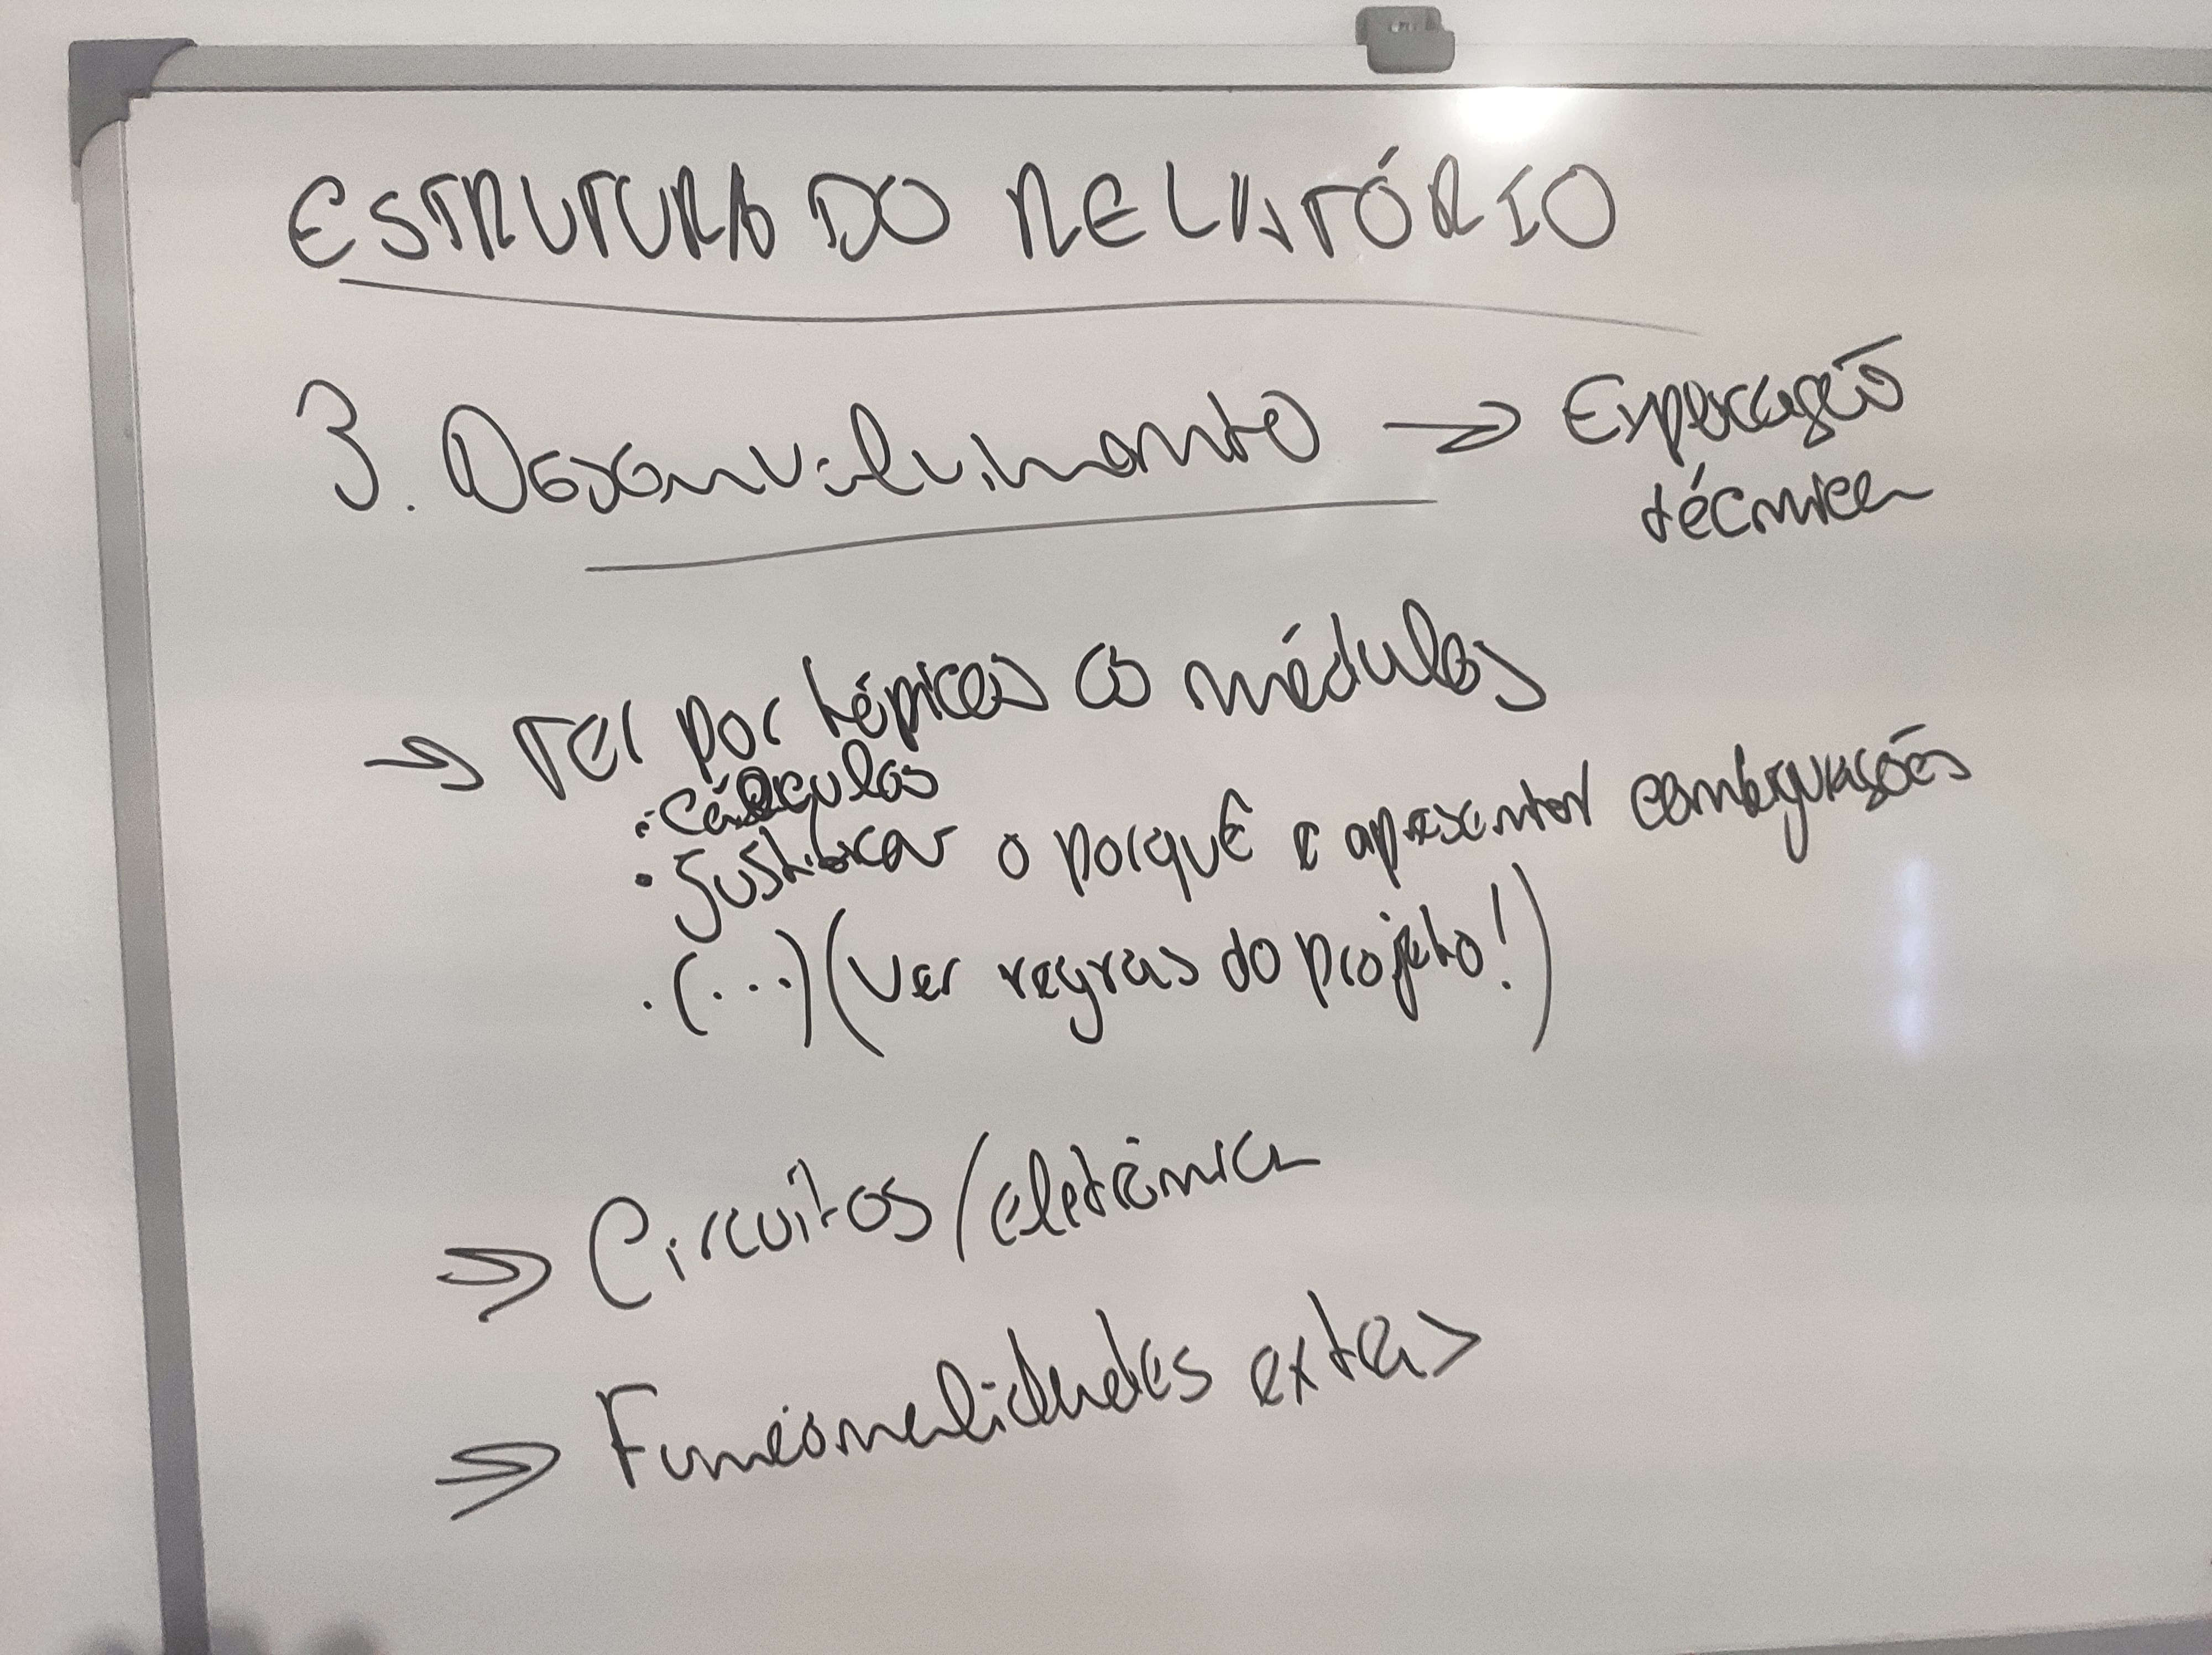 ESTRUTURA DO RELATÓRIO
3. Desenvolvimento → Explicação
técnica
→ Ter por tópicos os módulos
• Cálculos
• Justificar o porquê e apresentar configurações
• (...) (Ver regras do projeto!)
⇒ Circuitos/eletrónica
⇒ Funcionalidades extras